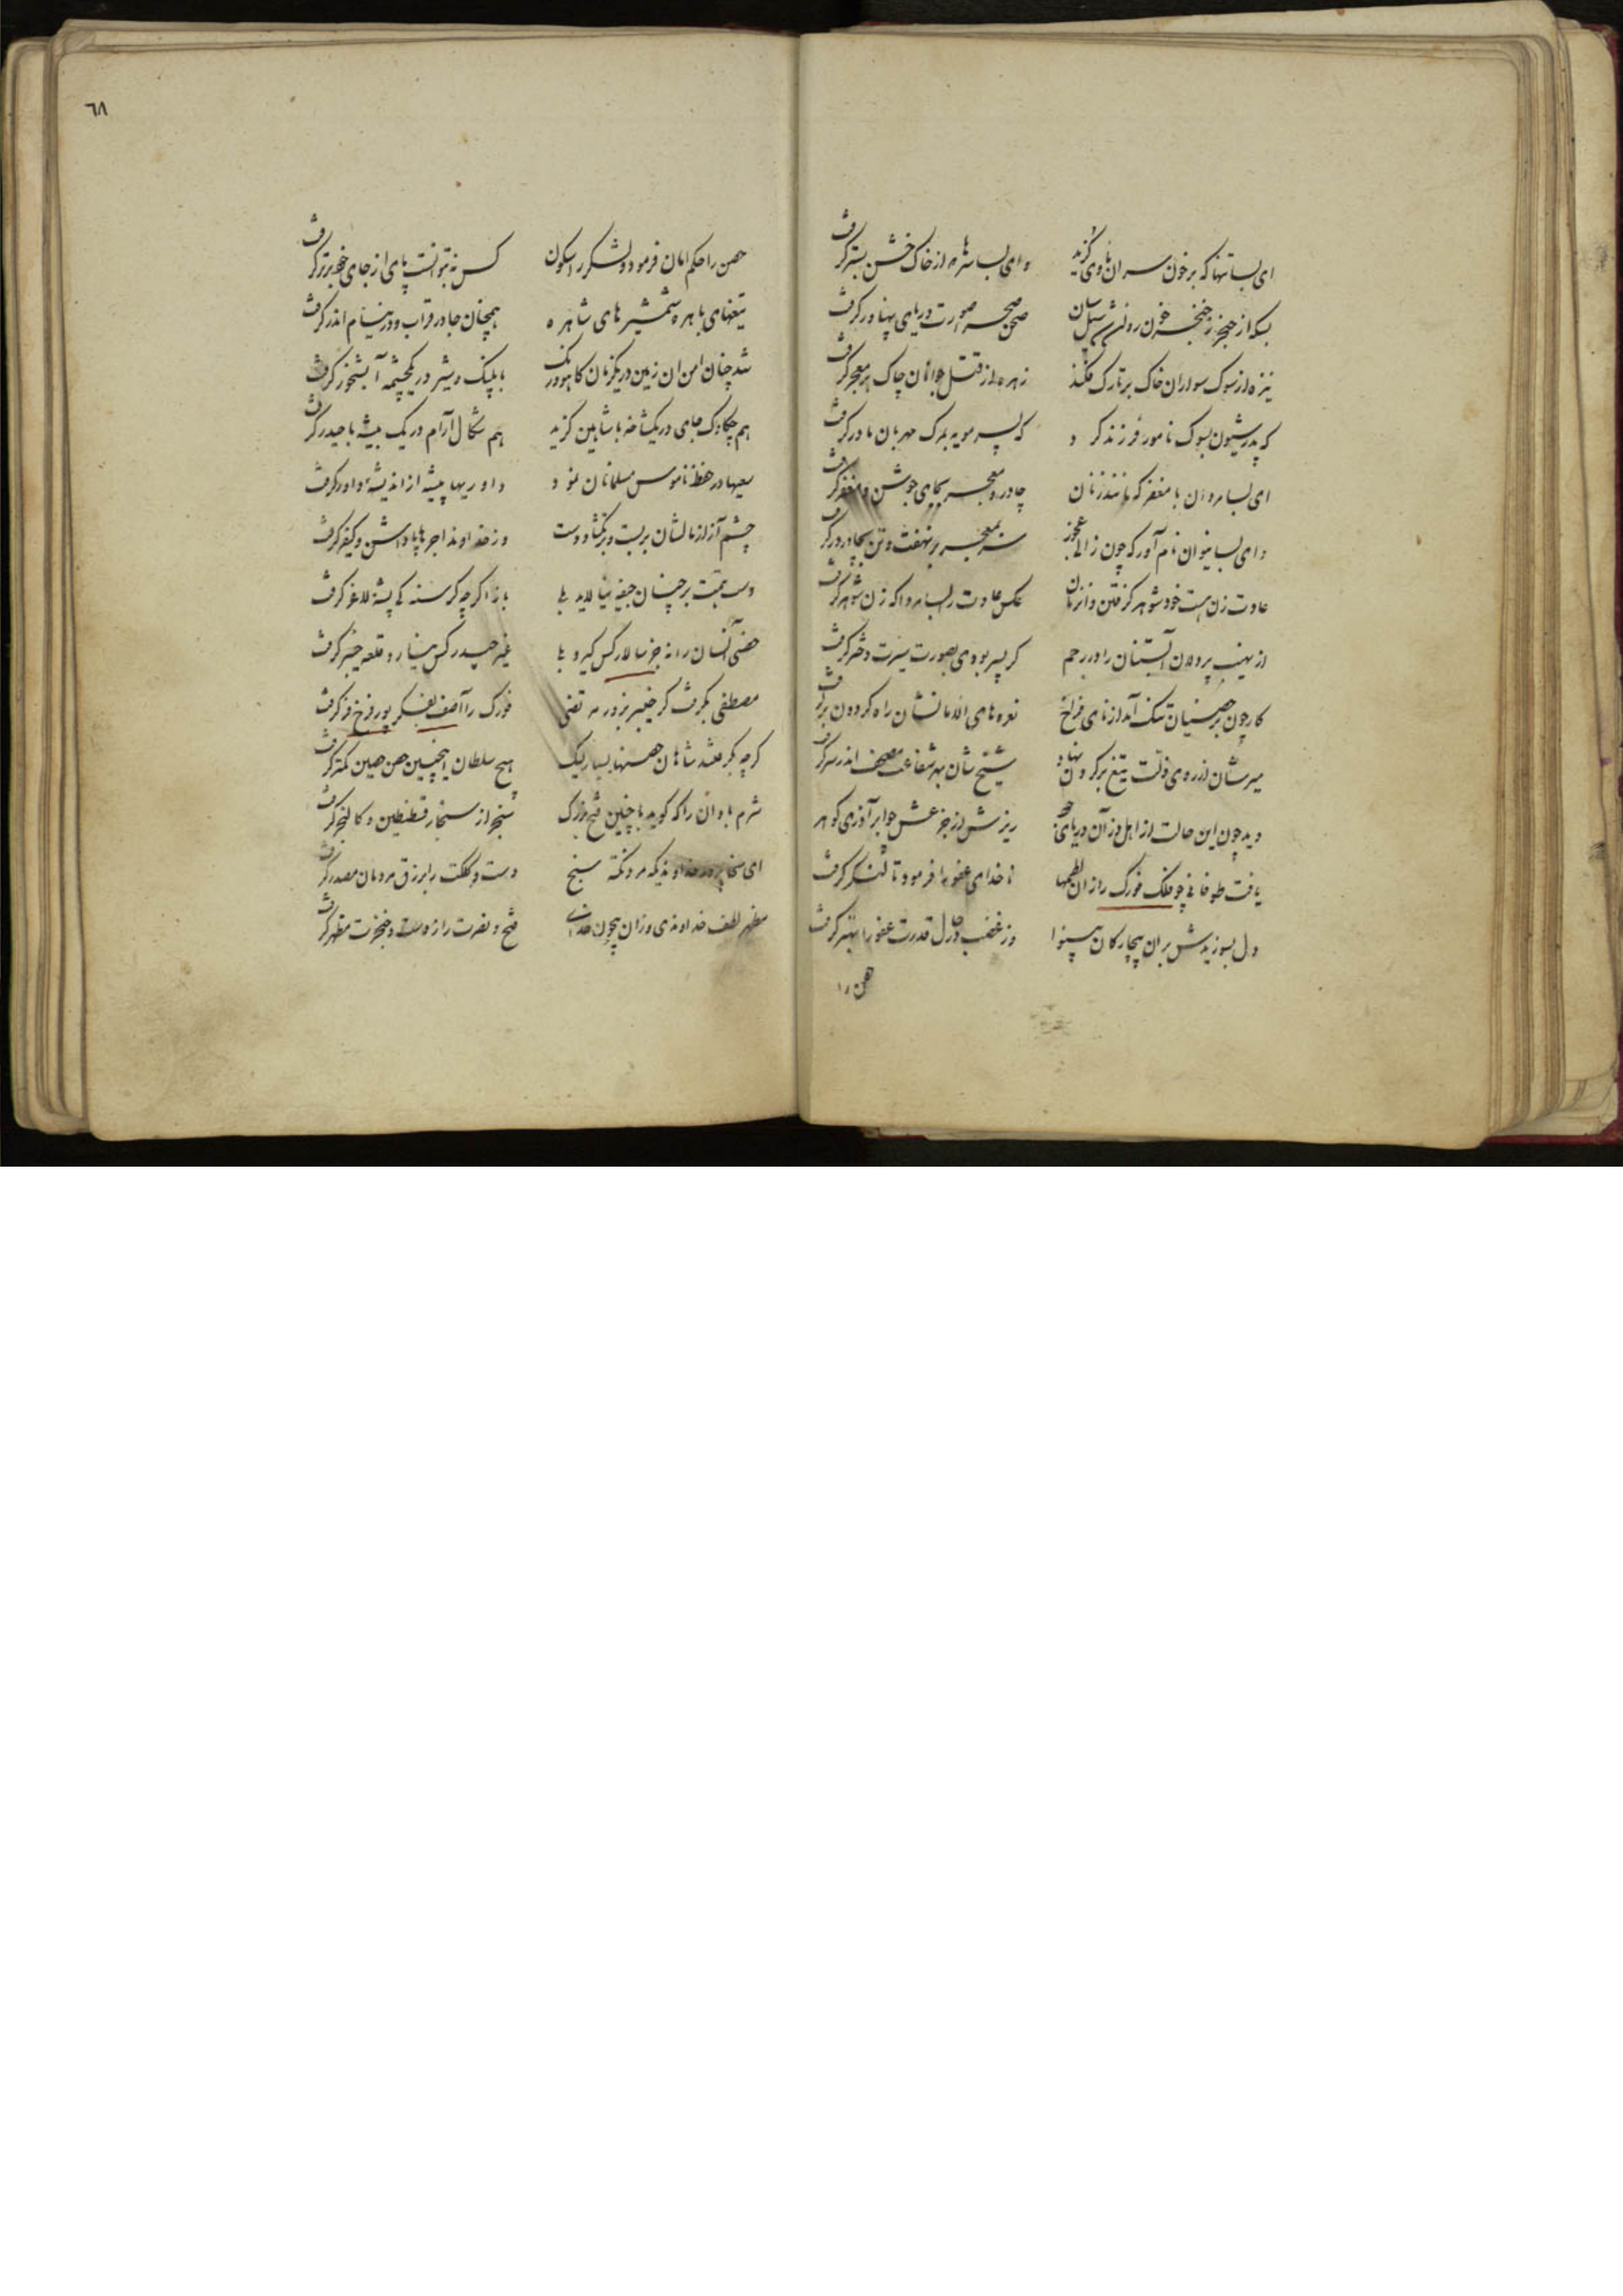 ای بسا تنها که برخون سران ماوی گزید    وای بسا سرها که از خاک خشن بستر گرفت
بسکه از حنجر ز خنجر خون روان شد سیل سان    صحن صحرا صورت دریای پهناور گرفت
نیزه از سوک سواران خاک بر تارک فکند    زهره از قتل جوانان چاک بر معجر گرفت
که پدر شیون بسوک نامور فرزند کرد    که پسر مویه بمرک مهربان مادر گرفت
ای بسا مردان با مغفر که مانند زنان    چادر و معجر بجای جوشن و مغفر گرفت
وای بسا نیوان نام آور که چون زالی عجوز    سر بمعجر بر نهفت و تن بچادر در گرفت
عادت زن هست خود شوهر گرفتن وانزمان    عکس عادت ای بسا مردا که زن شوهر گرفت
از نهیب پردلان آبستنان را در رحم    گر پسر بودی بصورت سیرت دختر گرفت
کار چون بر حصنیان تنک آمد از نای فراخ    نعره های الامانشان راه گردون بر گرفت
میرشان از ره ذلت تیغ بر گردن نهاد    شیخشان بهر شفاعت مصحف اندر سر گرفت
دید چون این حالت از اهل دز آن دریای    ریزش از جزعش جو ابر آذری گوهر
یافت طوفانی چو ملک فورک را زان لطمها    ناخدای عفو را فرمود تا لنگر گرفت
دل بسوزیدش بران بیچارکان بینوا    وز غضب در دل قدرت عفو را بهتر گرفت
حصن را
٦٨
حصن را حکم امان فرمود و لشکر را سکون    کس نه بتوانست پای از جای خود برتر گرفت
تیغهای باهره شمشیرهای شاهره    همچنان جا در قراب و در نیام اندر گرفت
شد چنان امن ان زمین در یکزمان کاهو و رنک    با پلنک و شیر در یکچشمه آبشخور گرفت
هم چکاوک جای در یکشاخه با شاهین گزید    هم شکال آرام در یک بیشه با حیدر گرفت
سعیها در حفظ ناموس مسلمانان نمود    داوریها پیشه از اندیشه داور گرفت
چشم آز از مالشان بر بست و بر نکشاد دست    وز خداوند اجرها پاداش و کیفر گرفت
دست همت بر چنان جیفه نیالاید بلی    باز اگر چه گرسنه کی پشه لاغر گرفت
حصنی آنسان را نه جز سالار کس گیرد بلی    غیر حیدر کس نیارد قلعه خیبر گرفت
مصطفی بگرفت گر خیبر بزور مرتضی    فورک را آصف بفکر پور فرخ فر گرفت
گرچه بگرفتند شاهان حصنها بسیار لیک    هیچ سلطان اینچنین حصن حصین کمتر گرفت
شرم بادان را که گوید با چنین فتح بزرک    سنجر از سنجار قسطنطین و کالنجر گرفت
ای سخا پرور خداوندیکه مرد نکته سنج    دست و کلکت را برزق مردمان مصدر گرفت
مظهر لطف خداوندی وزان بیچون خدای    فتح و نصرت را ز دست و خنجرت مظهر گرفت